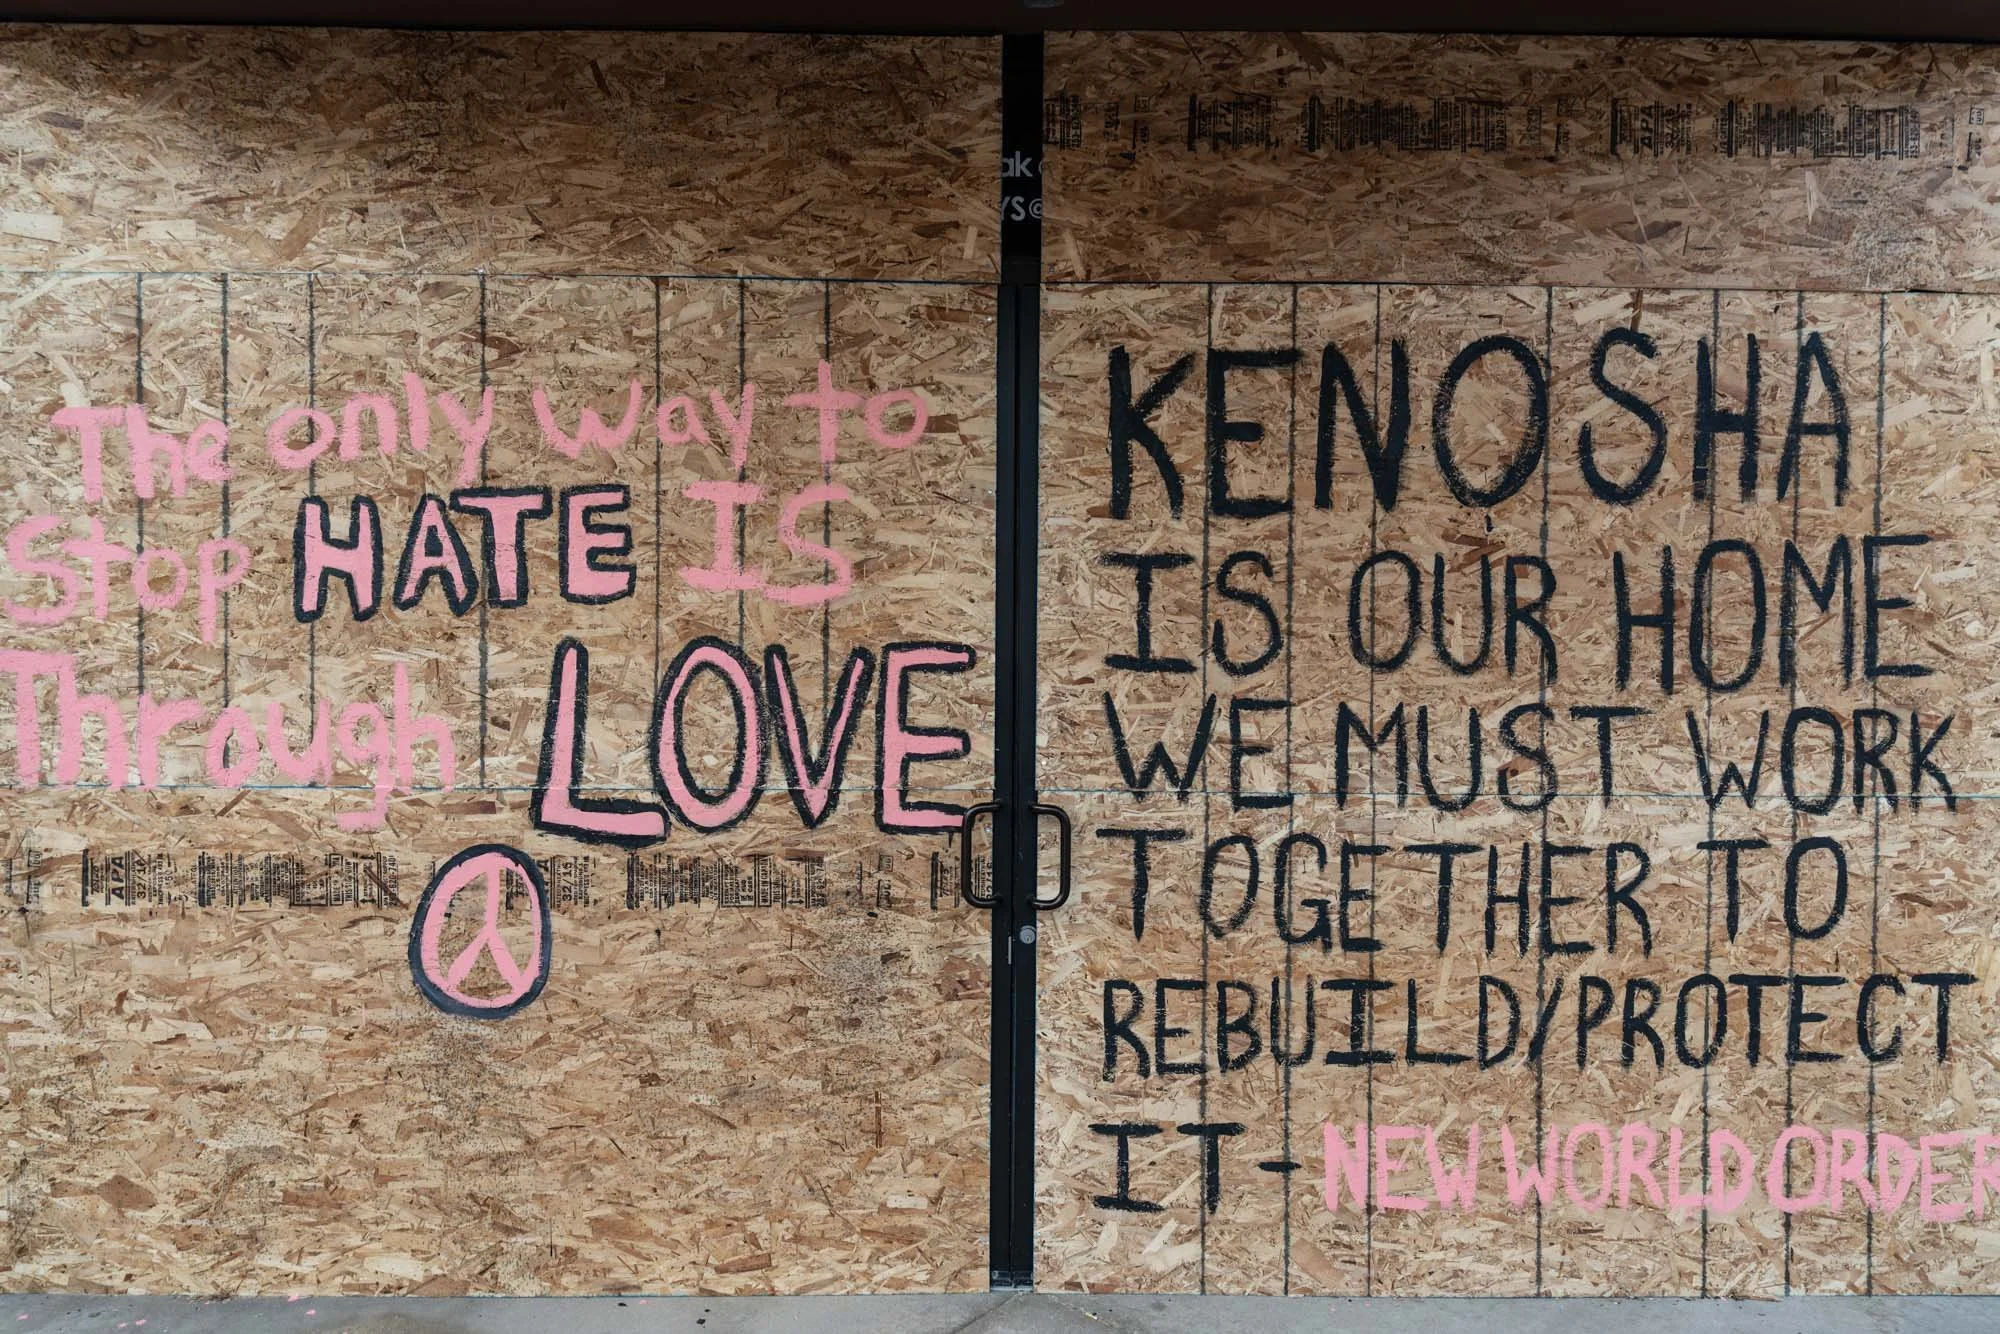 The only way to
Stop HATE IS
Through LOVE
KENOSHA
IS OUR HOME
WE MUST WORK
TOGETHER TO
REBUILD/PROTECT
IT - NEW WORLD ORDER
APA
32/16
32/16
APA
APA